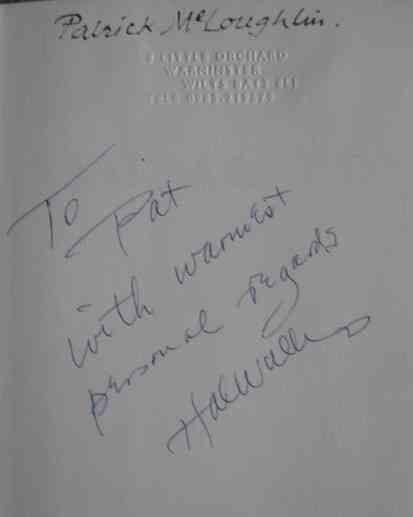 Patrick McLoughlin.
LITTLE ORCHARD
WARMINSTER
WILTS
To Pat
with warmest
personal regards
Hal Wallis